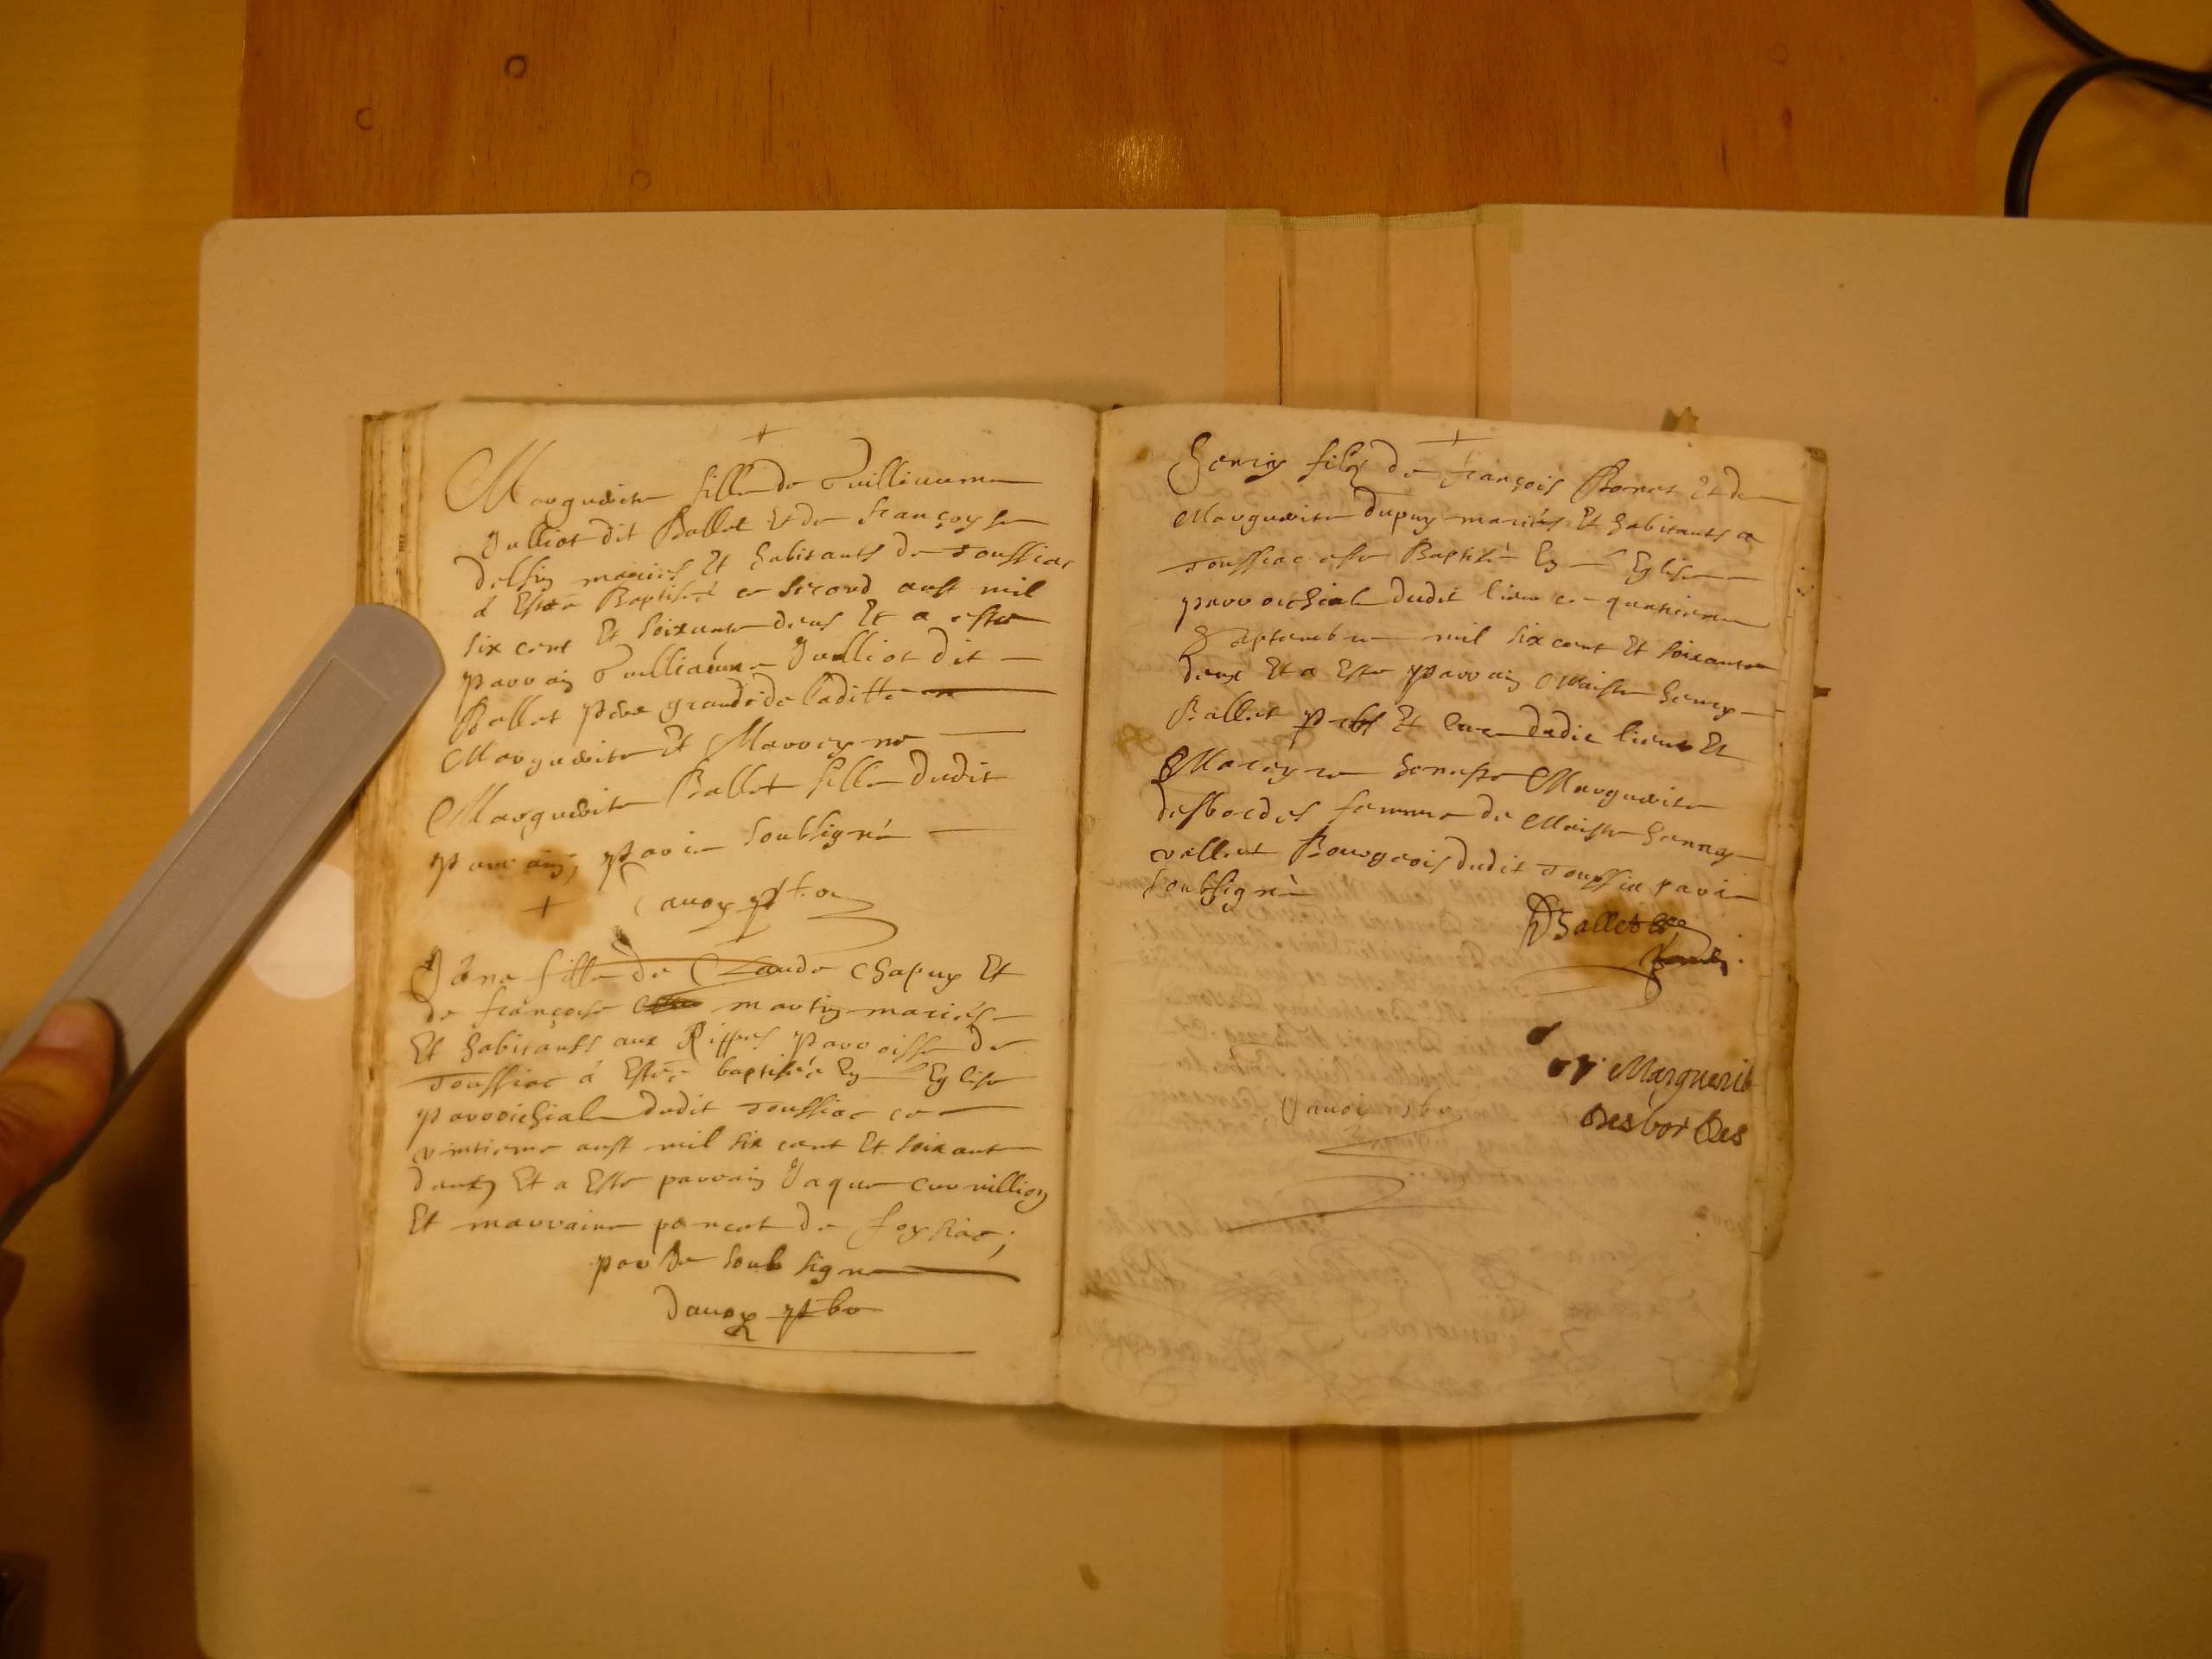 Marguerite fille de Guilliaume
Julliot dit Ballet Et de françoyse
delfin mariés Et habitants de Joussiac
a Estée Baptiséé ce second aust mil
six cent Et soixante deus Et a esté
parrain Guilliaume Julliot dit
Ballet père grand de laditte
Marguerite Et Marreyne
Marguerite Ballet fille dudit
parrain, par ie soubsigné
Jane fille de Claude Chapuy Et
de françoise martin mariés
Et habitants aux Riffes parroisse de
Joussiac a Estéé baptiséé En l'Eglise
parroichiale dudit Joussiac ce
vintieme aust mil six cent Et soixante
deux Et a Esté parrain Jaque
Et marraine de
par Je soub signe
Henry filz de françois Bornet Et de
Marguerite dupuy mariés Et habitants a
Joussiac esté Baptisé En l'Eglise
parroichiale dudit lieu ce quatrieme
Septembre mil six cent Et soixante
deux Et a Esté parrain Maistre henry
Ballet pbr Et Curé dudit lieu Et
Mareyne honeste Marguerite
desbordes femme de Maistre
vallet Bourgeois dudit par ie
soubsigné
Ballet
Marguerite
Desbordes